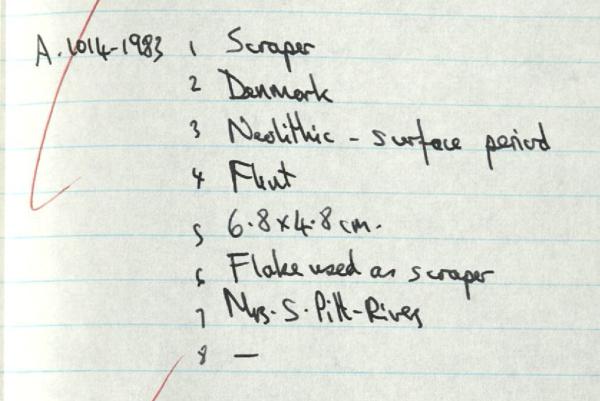 A.1014-1983 1 Scraper
2 Denmark
3 Neolithic - surface period
4 Flint
5 6.8 x 4.8 cm.
6 Flake used as scraper
7 Mrs. S. Pitt-Rivers
8 —